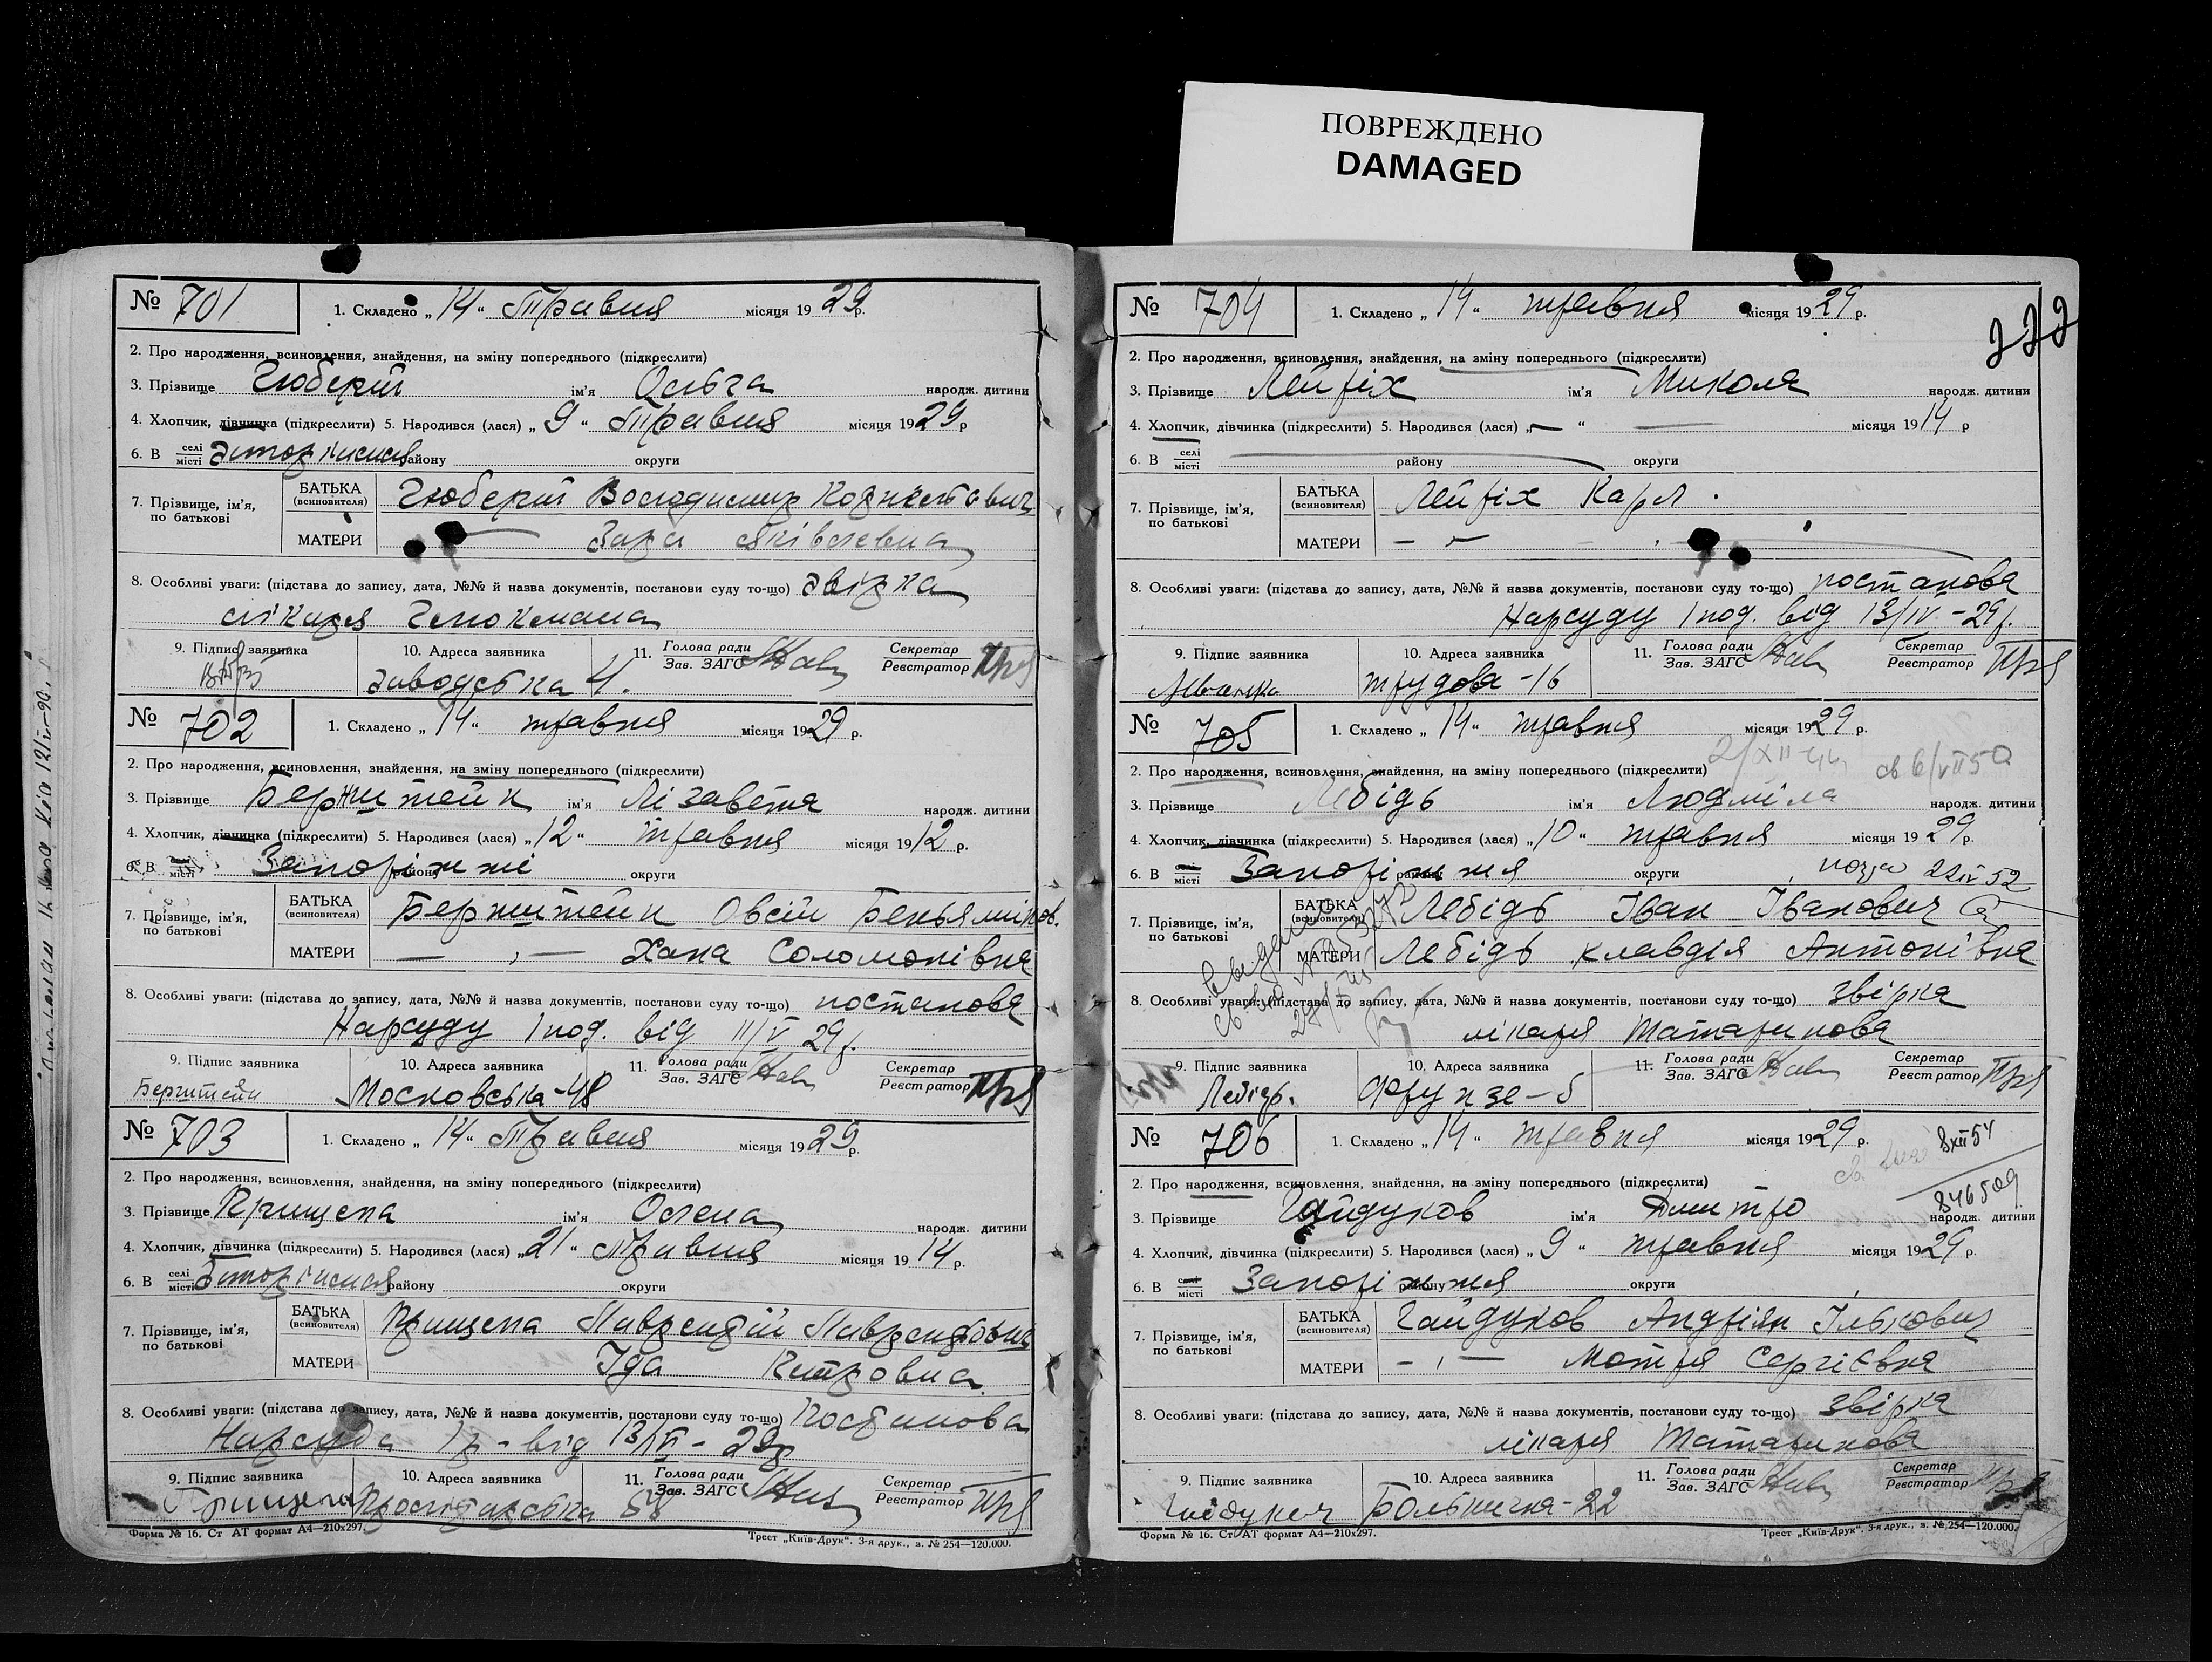 ПОВРЕЖДЕНО
DAMAGED
№ 701 1. Складено „ 14 “ Травня місяця 19 29 р.
2. Про народження, всиновлення, знайдення, на зміну попереднього (підкреслити)
3. Прізвище Гюберт ім'я Ольга народж. дитини
4. Хлопчик, дівчинка (підкреслити) 5. Народився (лася) „ 9 “ Травня місяця 19 29 р
6. В селі місті району округи
7. Прізвище, ім'я, по батькові БАТЬКА (всиновителя) Гюберт Володимир
МАТЕРИ Зара Яківлевна
8. Особливі уваги: (підстава до запису, дата, №№ й назва документів, постанови суду то-що) звірка
лікаря
9. Підпис заявника 10. Адреса заявника 11. Голова ради Зав. ЗАГС Секретар Реєстратор
Заводська 4.
№ 702 1. Складено „ 14 “ травня місяця 19 29 р.
2. Про народження, всиновлення, знайдення, на зміну попереднього (підкреслити)
3. Прізвище Бернштейн ім'я Лізавета народж. дитини
4. Хлопчик, дівчинка (підкреслити) 5. Народився (лася) „ 12 “ травня місяця 19 12 р.
6. В селі місті Запоріжжі району округи
7. Прізвище, ім'я, по батькові БАТЬКА (всиновителя) Бернштейн Овсій Беньямінов.
МАТЕРИ — „ — Хана Соломонівна
8. Особливі уваги: (підстава до запису, дата, №№ й назва документів, постанови суду то-що) постанова
Нарсуду 1 под. від 11/V 29 р.
9. Підпис заявника 10. Адреса заявника 11. Голова ради Зав. ЗАГС Секретар Реєстратор
Бернштейн Московська-48
№ 703 1. Складено „ 14 “ Травня місяця 19 29 р.
2. Про народження, всиновлення, знайдення, на зміну попереднього (підкреслити)
3. Прізвище Прищепа ім'я Олена народж. дитини
4. Хлопчик, дівчинка (підкреслити) 5. Народився (лася) „ 21 “ Травня місяця 19 14 р.
6. В селі місті району округи
7. Прізвище, ім'я, по батькові БАТЬКА (всиновителя) Прищепа Лаврентій Лаврентьович
МАТЕРИ Їда Петровна
8. Особливі уваги: (підстава до запису, дата, №№ й назва документів, постанови суду то-що) Постанова
Нарсуда від 13/IV - 29 р
9. Підпис заявника 10. Адреса заявника 11. Голова ради Зав. ЗАГС Секретар Реєстратор
Прищепа
Форма № 16. Ст АТ формат А4—210x297.
Трест „Київ-Друк“. 3-я друк., з. № 254—120.000.
222
№ 704 1. Складено „ 14 “ травня місяця 19 29 р.
2. Про народження, всиновлення, знайдення, на зміну попереднього (підкреслити)
3. Прізвище Лейфіх ім'я Микола народж. дитини
4. Хлопчик, дівчинка (підкреслити) 5. Народився (лася) „ — “ — місяця 19 14 р
6. В селі місті району округи
7. Прізвище, ім'я, по батькові БАТЬКА (всиновителя) Лейфіх Карл.
МАТЕРИ — —
8. Особливі уваги: (підстава до запису, дата, №№ й назва документів, постанови суду то-що) постанова
Нарсуду 1 под. від 13/IV - 29 р.
9. Підпис заявника 10. Адреса заявника 11. Голова ради Зав. ЗАГС Секретар Реєстратор
трудова-16
№ 705 1. Складено „ 14 “ травня місяця 19 29 р.
2/XII-44 св 6/VII 50
2. Про народження, всиновлення, знайдення, на зміну попереднього (підкреслити)
3. Прізвище Лебідь ім'я Людміла народж. дитини
4. Хлопчик, дівчинка (підкреслити) 5. Народився (лася) „ 10 “ травня місяця 19 29 р.
6. В селі місті Запоріжжя району округи
7. Прізвище, ім'я, по батькові БАТЬКА (всиновителя) Лебідь Іван Іванович
МАТЕРИ Лебідь Клавдія Антонівна
8. Особливі уваги: (підстава до запису, дата, №№ й назва документів, постанови суду то-що) звірка
лікаря Татаринова
9. Підпис заявника 10. Адреса заявника 11. Голова ради Зав. ЗАГС Секретар Реєстратор
Лебідь. Фрунзе-5
№ 706 1. Складено „ 14 “ травня місяця 19 29 р.
8 XII 54
846509
2. Про народження, всиновлення, знайдення, на зміну попереднього (підкреслити)
3. Прізвище Гайдуков ім'я Дмитро народж. дитини
4. Хлопчик, дівчинка (підкреслити) 5. Народився (лася) „ 9 “ травня місяця 19 29 р.
6. В селі місті Запоріжжя району округи
7. Прізвище, ім'я, по батькові БАТЬКА (всиновителя) Гайдуков Андріян Ількович
МАТЕРИ — „ — Мотря Сергієвна
8. Особливі уваги: (підстава до запису, дата, №№ й назва документів, постанови суду то-що) звірка
лікаря Татаринова
9. Підпис заявника 10. Адреса заявника 11. Голова ради Зав. ЗАГС Секретар Реєстратор
Больнична-22
Форма № 16. Ст АТ формат А4—210x297.
Трест „Київ-Друк“. 3-я друк., з. № 254—120.000.